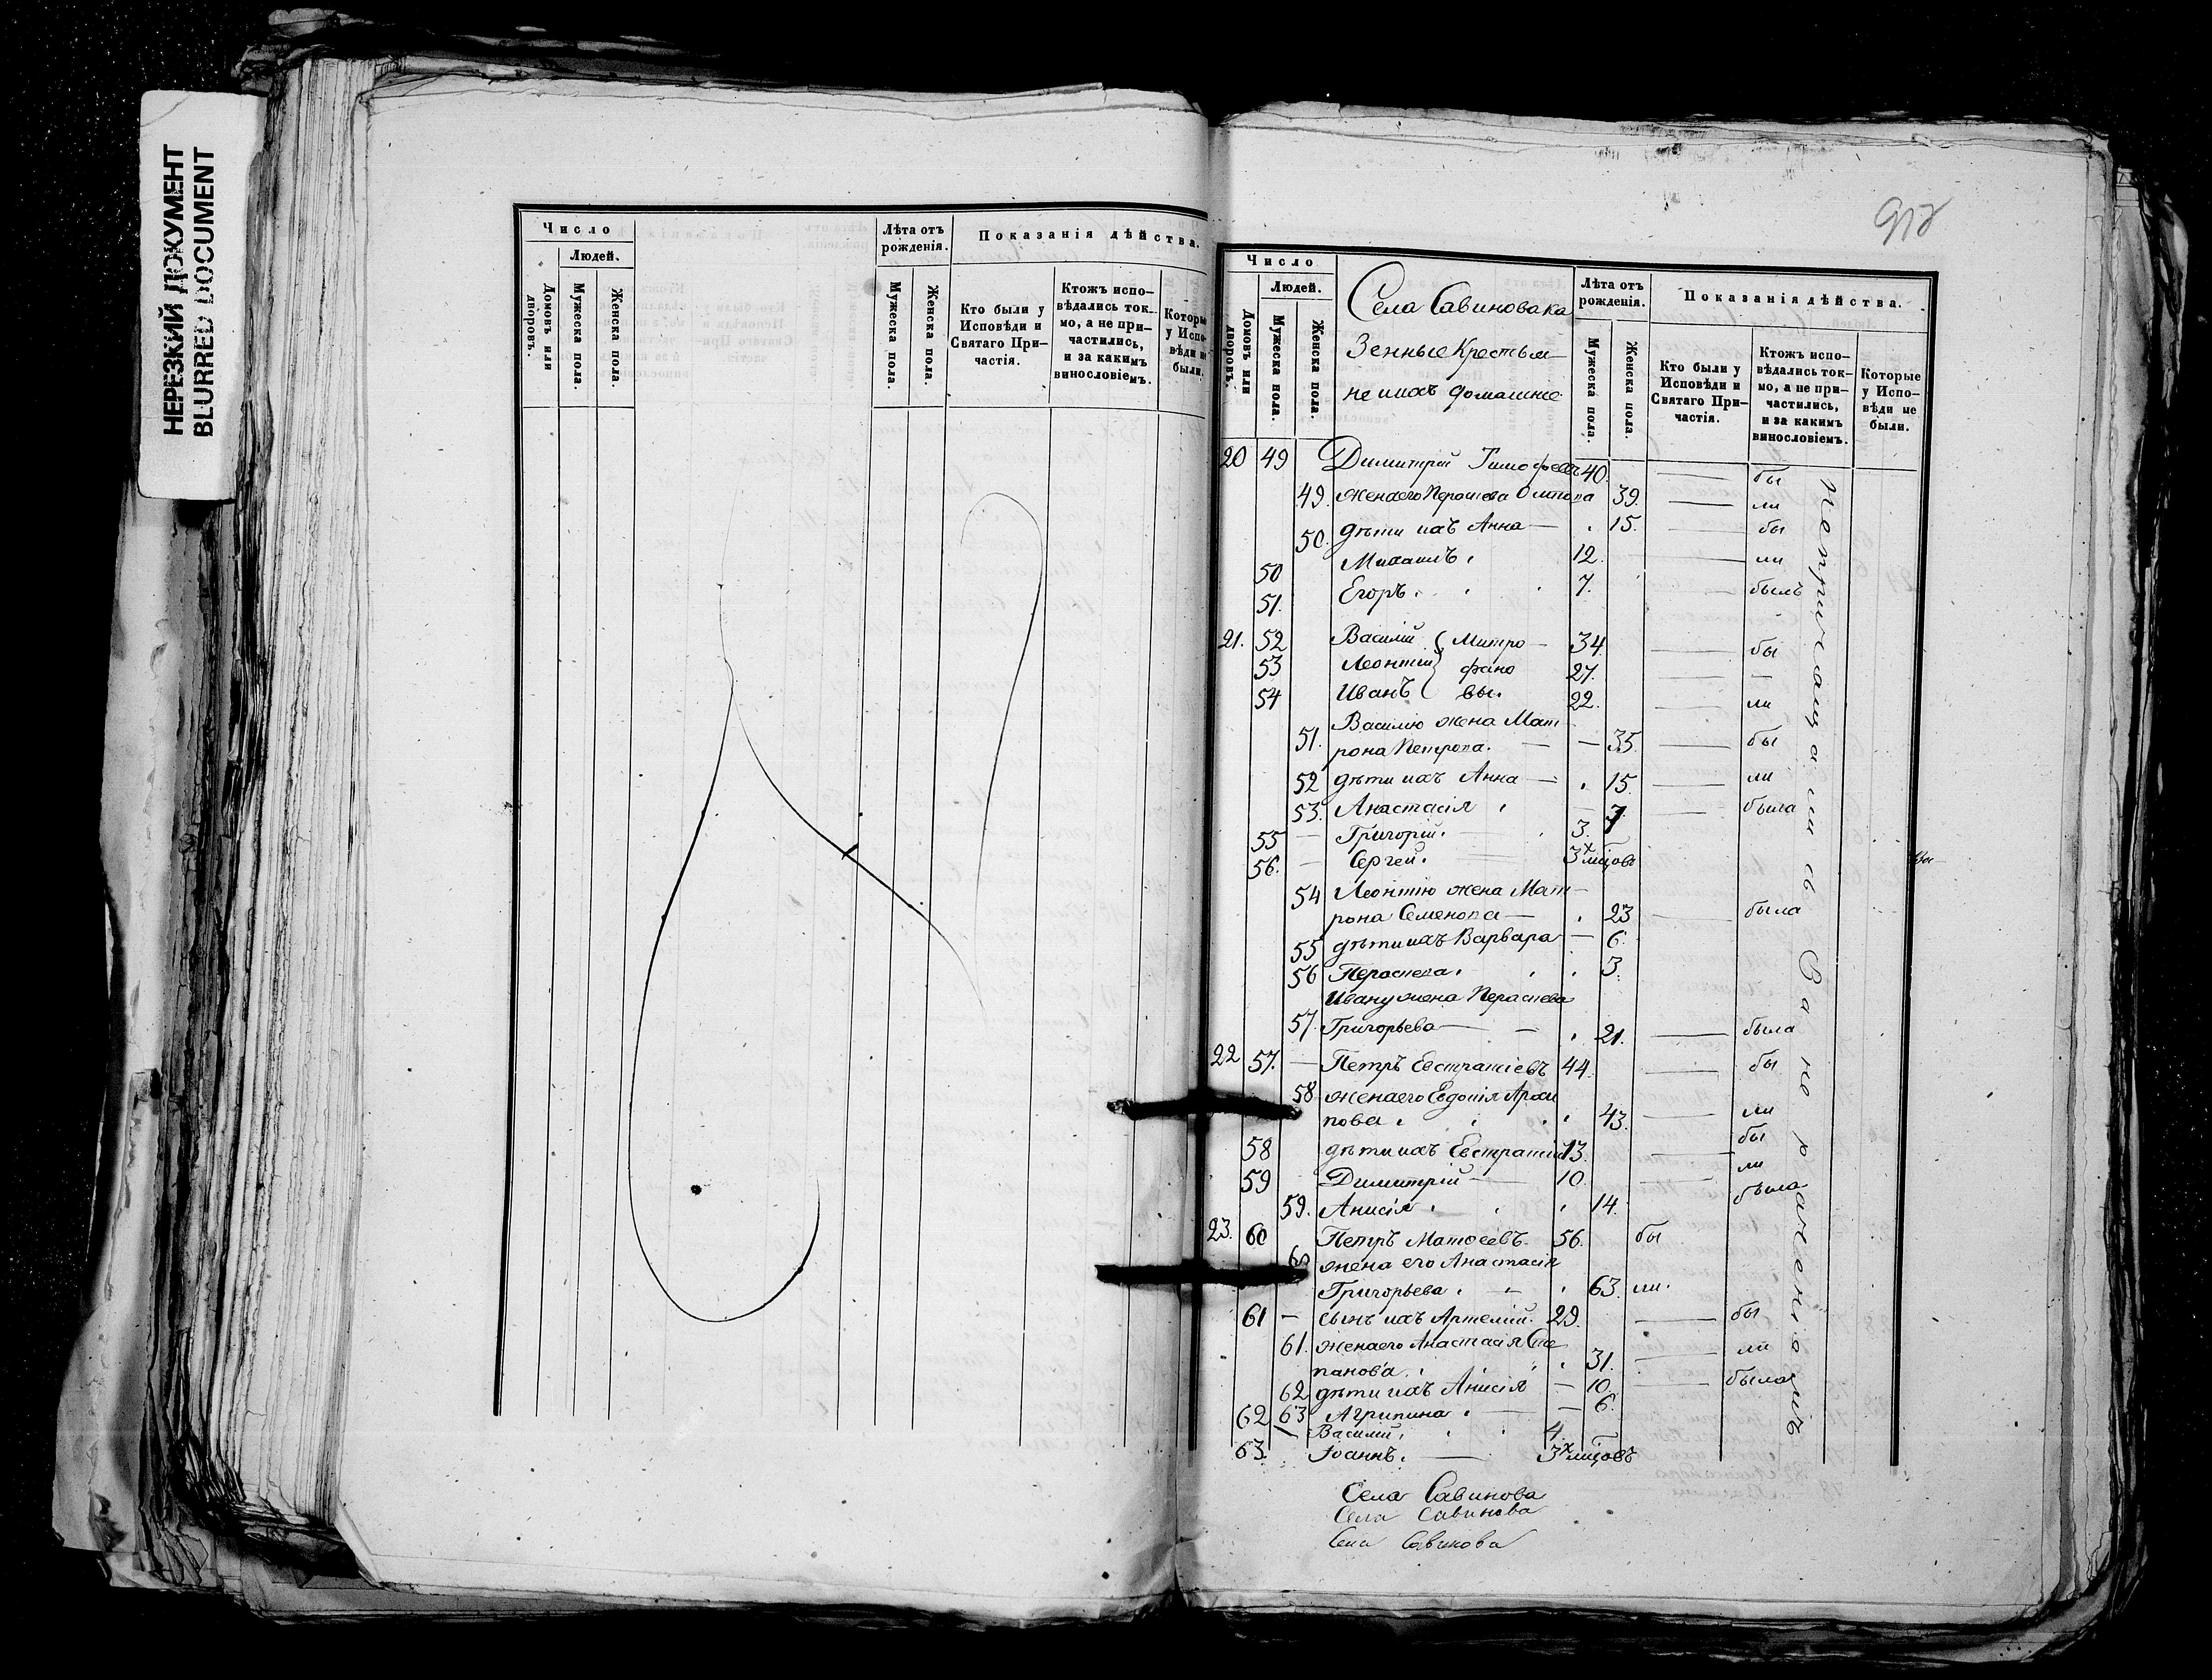 НЕРЕЗКИЙ ДОКУМЕНТ
BLURRED DOCUMENT
Число
Людей.
Домовъ или дворовъ.
Мужеска пола.
Женска пола.
Лѣта отъ рожденія.
Мужеска пола.
Женска пола.
Показанія дѣйства.
Кто были у Исповѣди и Святаго Причастія.
Ктожъ исповѣдались токмо, а не причастились, и за какимъ винословіемъ.
Которые у Исповѣди не были.
Число
Людей.
Домовъ или дворовъ.
Мужеска пола.
Женска пола.
Села Савинова ка
зенные Крестья
не и ихъ домашніе
Лѣта отъ рожденія.
Мужеска пола.
Женска пола.
Показанія дѣйства.
Кто были у Исповѣди и Святаго Причастія.
Ктожъ исповѣдались токмо, а не причастились, и за какимъ винословіемъ.
Которые у Исповѣди не были.
20 49 Димитрій Тимофеевъ 40. бы
49. жена его Параскева Осипова 39. ли
50. дѣти ихъ Анна 15. бы
50 Михаилъ 12. ли
51. Егоръ 7. былъ
21. 52 Василій Митро 34. бы
53 Леонтій фано 27.
54 Иванъ вы. 22. ли
Василію жена Мат
51. рона Петрова. 35. бы
52 дѣти ихъ Анна 15. ли
53. Анастасія 7 была
55 Григорій. 3.
56. Сергей. 3х мцовъ
54 Леонтію жена Мат
рона Семенова 23 была
55 дѣти ихъ Варвара 6.
56 Параскева 3.
Ивану жена Параскева
57. Григорьева 21. была
22 57. Петръ Евстратіевъ 44. бы
58 жена его Евдокія Архи
пова 43. ли
58 дѣти ихъ Евстратій 13. бы
59 Димитрій 10. ли
59. Анисія 14. была
23. 60 Петръ Матѳеевъ 56. бы
60 жена его Анастасія
Григорьева 63. ли.
61 сынъ ихъ Артемій. 29. бы
61. жена его Анастасія Сте
панова 31. ли
62 дѣти ихъ Анисія 10. была
62 63 Агрипина 6.
Василій 4.
63. Іоаннъ. 3х мцовъ
непричащались За нераченіемъ
Села Савинова
Села Савинова
Села Савинова